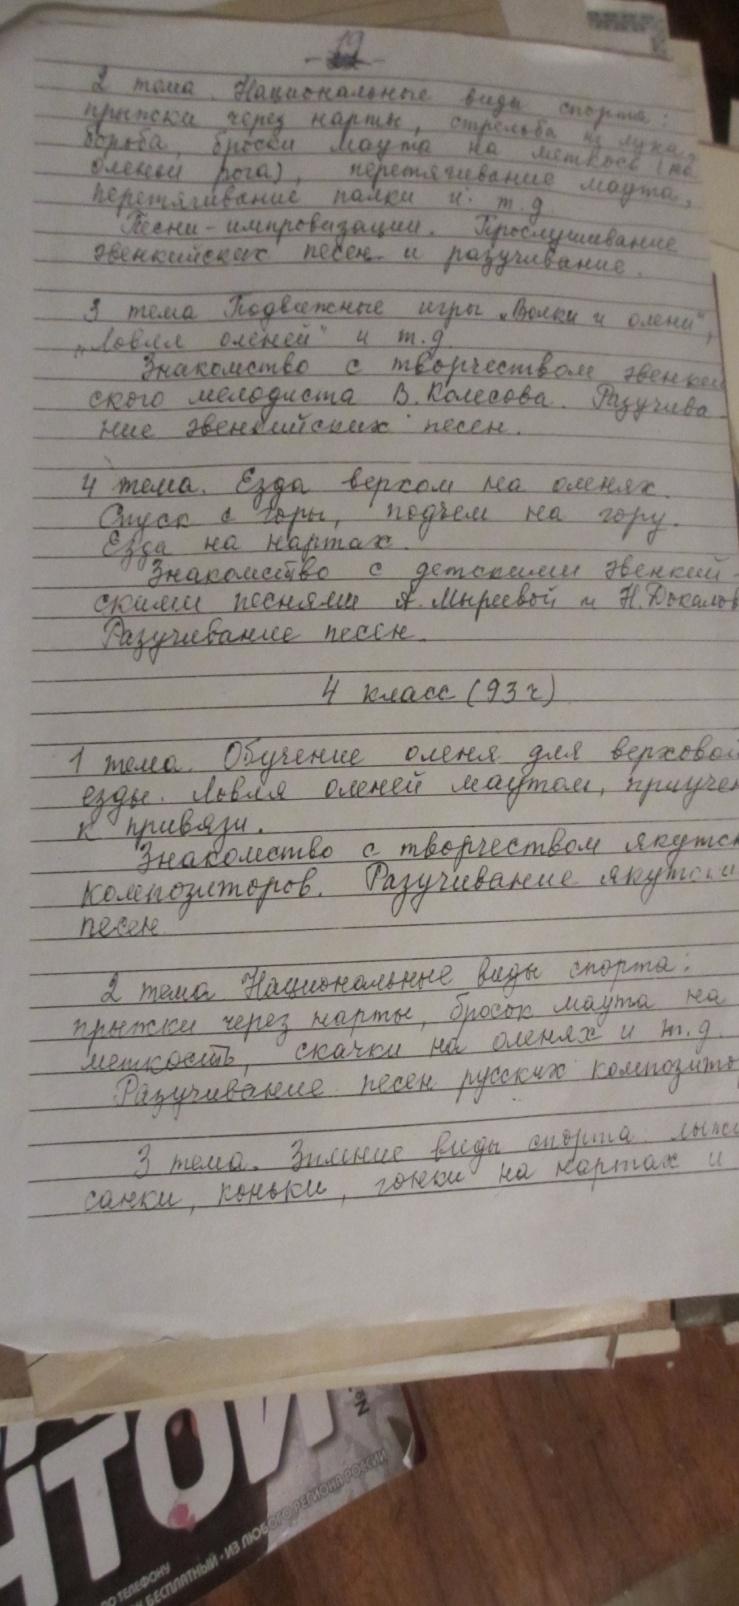 - 19 -
2 тема. Национальные виды спорта:
прыжки через нарты, стрельба из лука,
борьба, броски маута на меткость (на
оленьи рога), перетягивание маута,
перетягивание палки и т.д
Песни-импровизации. Прослушивание
эвенкийских песен и разучивание.
3 тема Подвижные игры „Волки и олени",
„Ловля оленей" и т.д.
Знакомство с творчеством эвенкий
ского мелодиста В. Колесова. Разучива-
ние эвенкийских песен.
4 тема. Езда верхом на оленях.
Спуск с горы, подъем на гору.
Езда на нартах.
Знакомство с детскими эвенкий-
скими песнями А. Мыреевой и Н. Докалов
Разучивание песен.
4 класс (93 ч)
1 тема. Обучение оленя для верховой
езды. Ловля оленей маутом, приучен
к привязи.
Знакомство с творчеством якутск
композиторов. Разучивание якутски
песен
2 тема Национальные виды спорта:
прыжки через нарты, бросок маута на
меткость, скачки на оленях и т.д.
Разучивание песен русских композито
3 тема. Зимние виды спорта лыж
санки, коньки, гонки на нартах и
НТОЙ
ПО ТЕЛЕФОНУ
БЕСПЛАТНЫЙ - ИЗ ЛЮБОГО РЕГИОНА РОССИИ